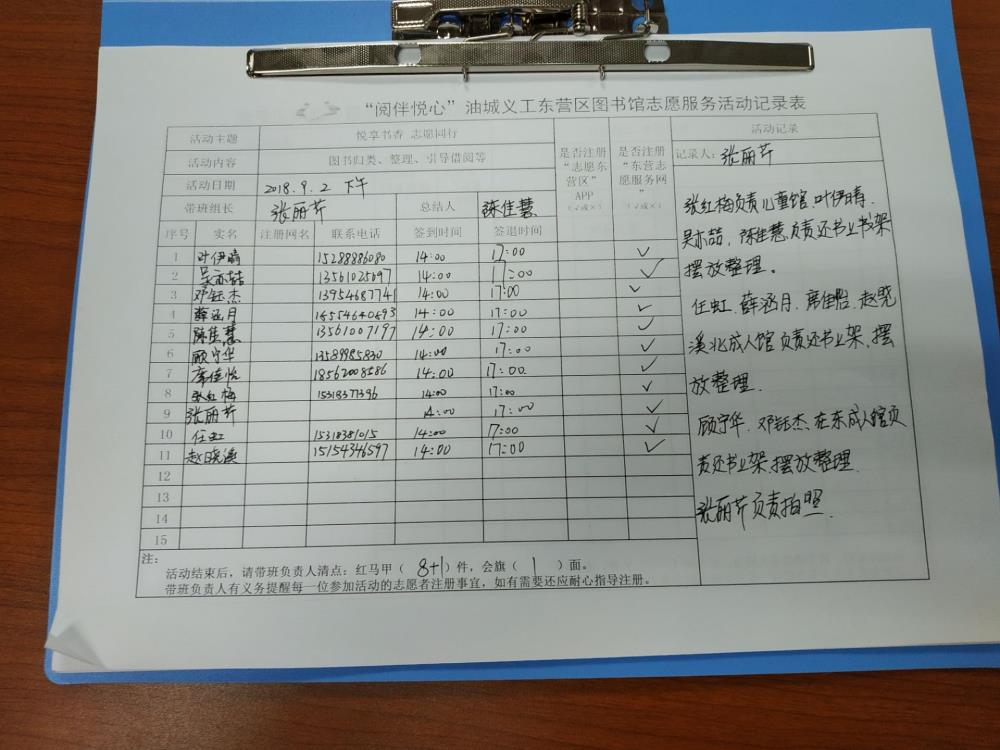 “阅伴悦心”油城义工东营区图书馆志愿服务活动记录表
活动主题 悦享书香 志愿同行
活动内容 图书归类、整理、引导借阅等
活动日期 2018.9.2 下午
带班组长 张丽芹 总结人 陈佳慧
是否注册“志愿东营区”APP（√或×）
是否注册“东营志愿服务网”（√或×）
序号 实名 注册网名 联系电话 签到时间 签退时间
1 叶伊晴 15288886080 14:00 17:00 √
2 吴亦喆 13561025697 14:00 17:00 √
3 邓钰杰 13954687741 14:00 17:00 √
4 薛涵月 14:00 17:00 √
5 陈佳慧 13561007197 14:00 17:00 √
6 顾宁华 13589985830 14:00 17:00 √
7 席佳怡 18562008586 14:00 17:00 √
8 张红梅 15318377396 14:00 17:00 √
9 张丽芹 14:00 17:00 √
10 任虹 15318381015 14:00 17:00 √
11 赵晓溪 15154346597 14:00 17:00 √
12
13
14
15
活动记录
记录人：张丽芹
张红梅负责儿童馆.叶伊晴.
吴亦喆,陈佳慧负责还书上书架
摆放整理。
任虹.薛涵月.席佳怡.赵晓
溪北成人馆负责还书上架,摆
放整理.
顾宁华.邓钰杰.在东成人馆负
责还书上架,摆放整理.
张丽芹负责拍照.
注：
活动结束后，请带班负责人清点：红马甲（ 8+1 ）件，会旗（ 1 ）面。
带班负责人有义务提醒每一位参加活动的志愿者注册事宜，如有需要还应耐心指导注册。